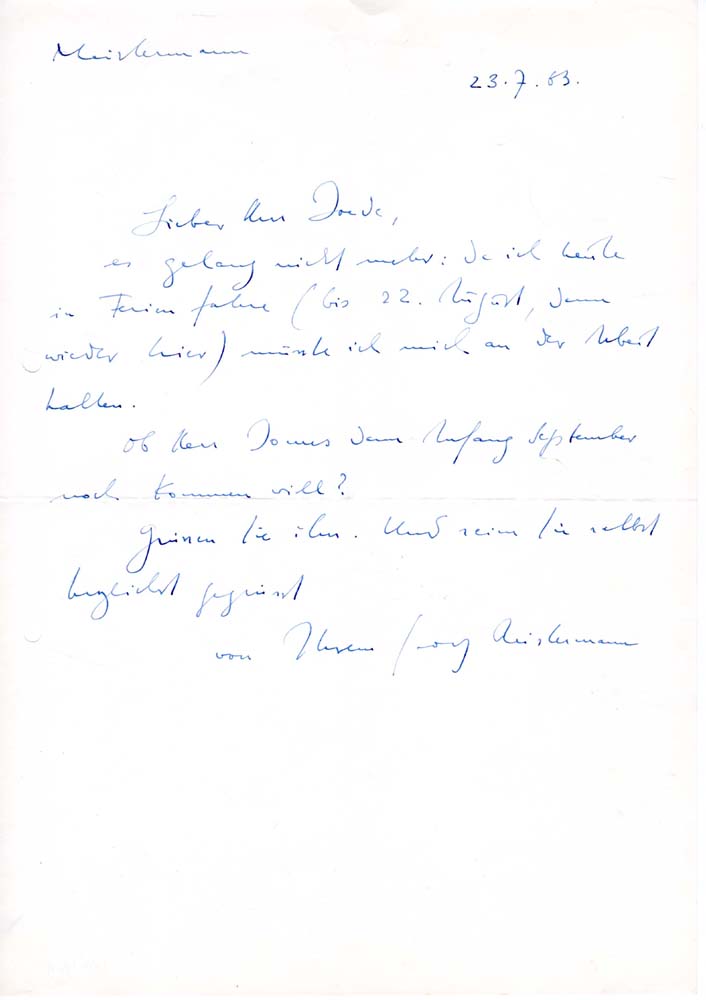 Meistermann
23.7.63.
Lieber Herr Doede,
es gelang nicht mehr: da ich heute
in Ferien fahre (bis 22. August, dann
wieder hier) müsste ich mich an der Arbeit
halten.
Ob Herr Domes dann Anfang September
noch kommen will?
Grüssen Sie ihn. Und seien Sie selbst
herzlichst gegrüsst
von Ihrem Georg Meistermann